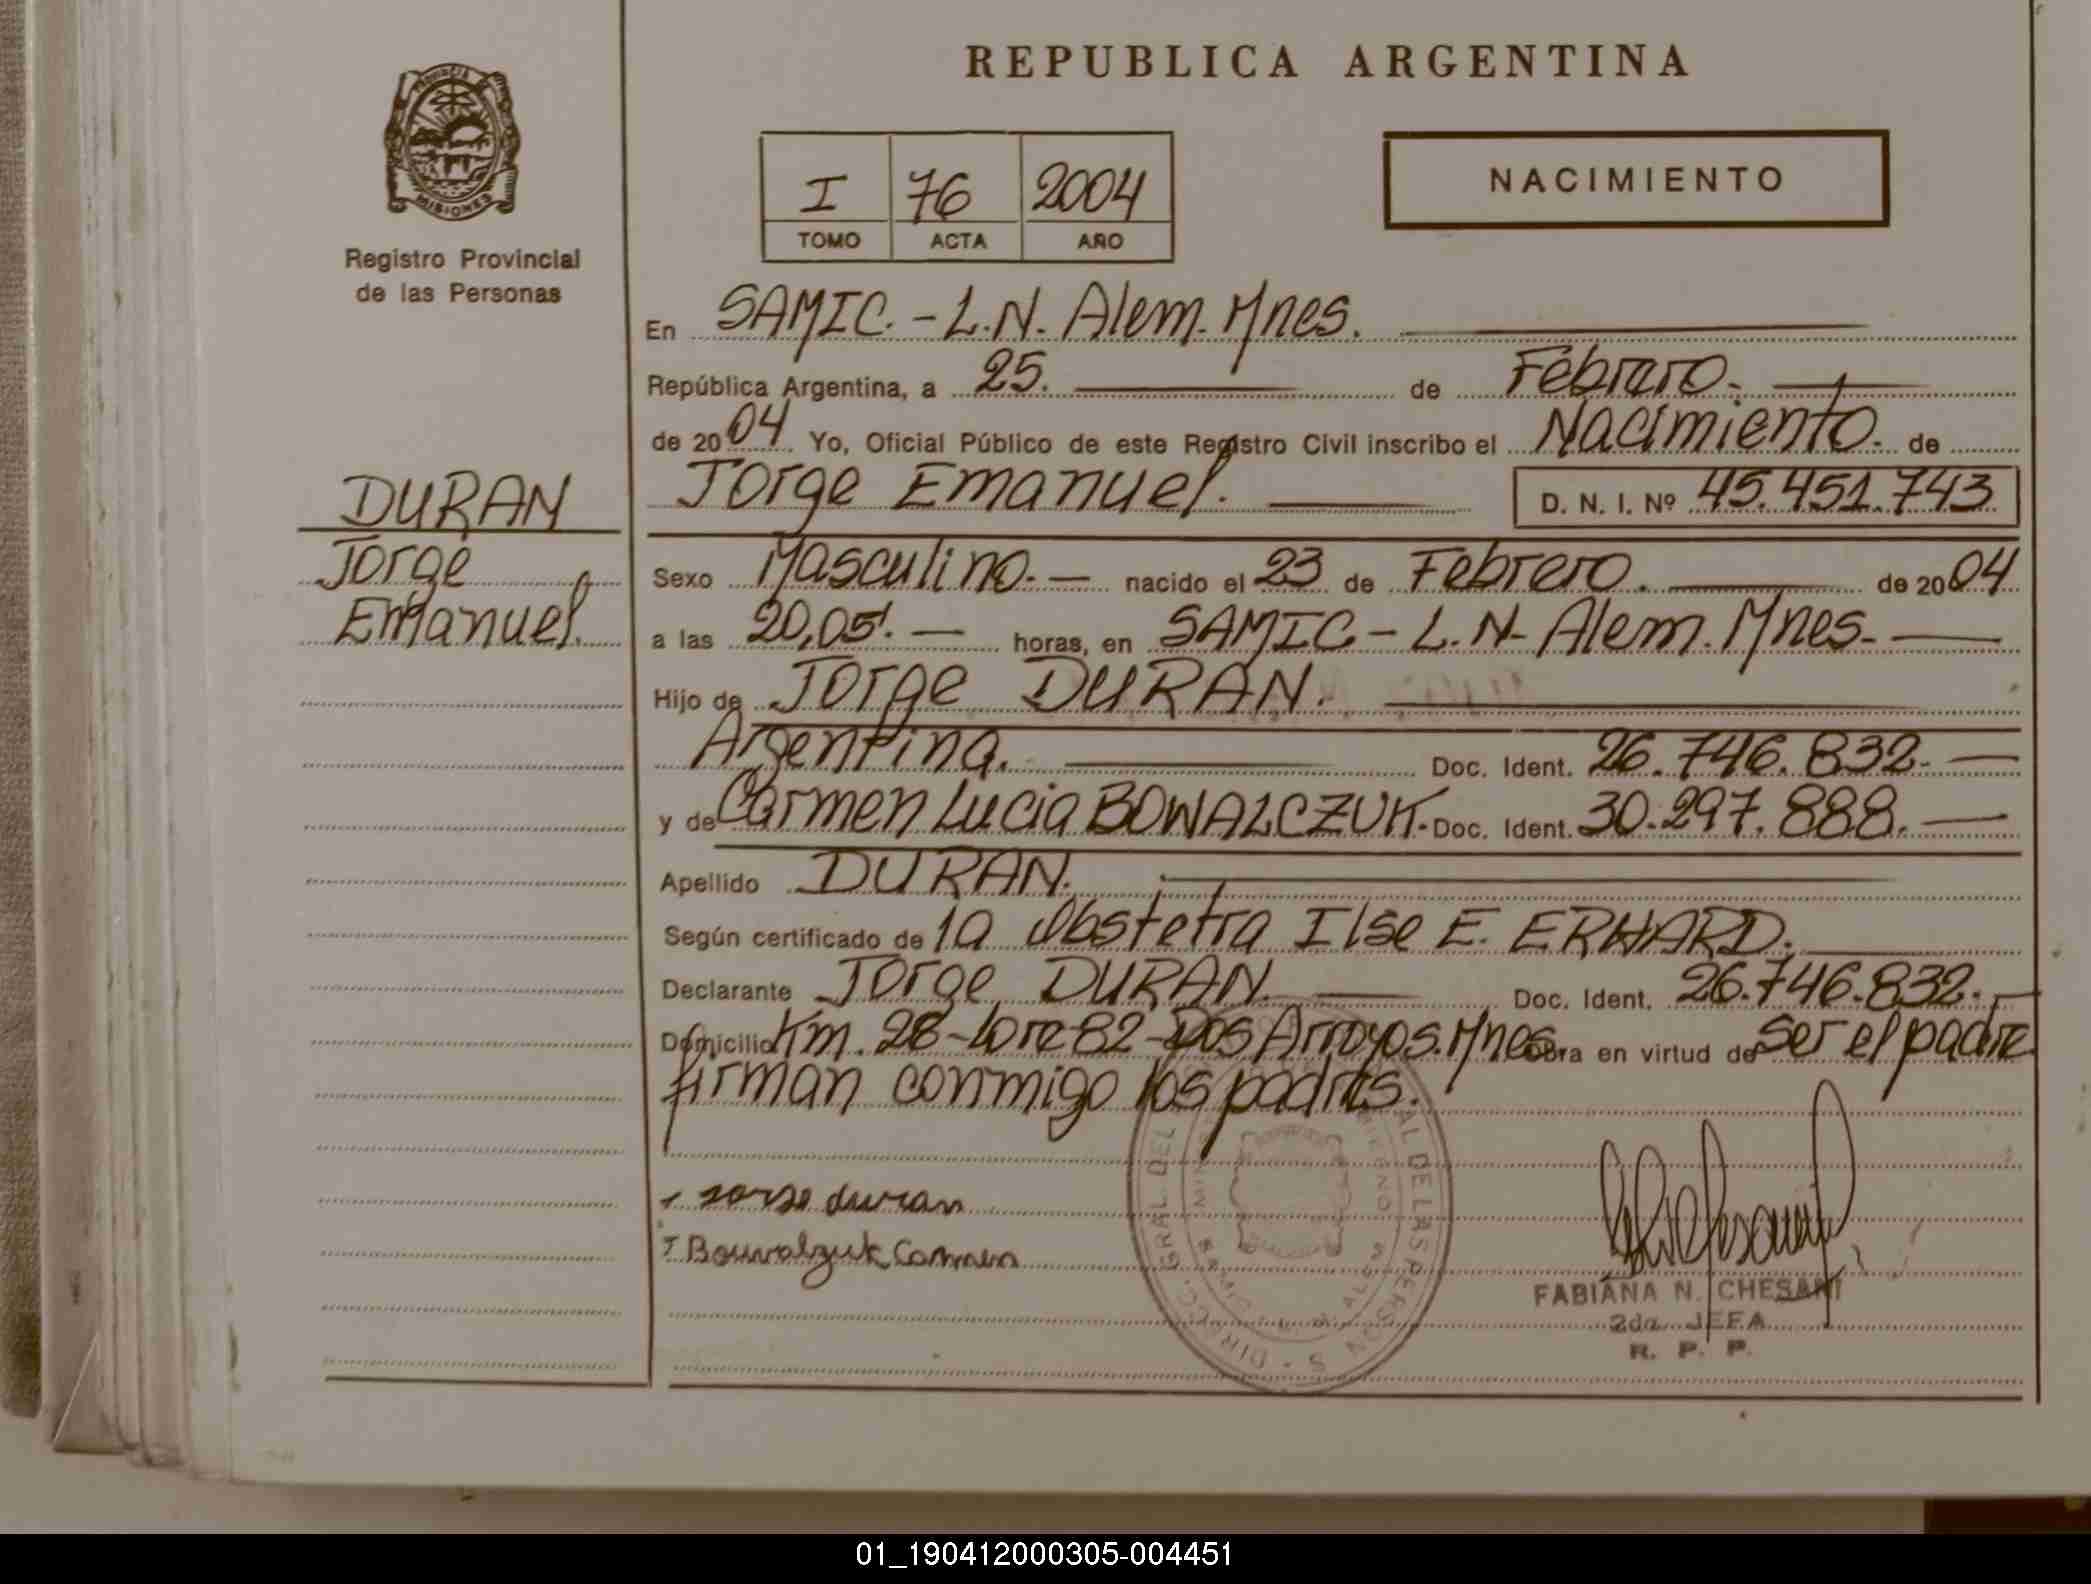 REPUBLICA ARGENTINA
PROVINCIA
MISIONES
Registro Provincial
de las Personas
I 76 2004
TOMO ACTA AÑO
NACIMIENTO
En SAMIC. - L.N. Alem. Mnes.
República Argentina, a 25. de Febrero.
de 2004 Yo, Oficial Público de este Registro Civil inscribo el Nacimiento. de
Jorge Emanuel. D. N. I. Nº 45.451.743
DURAN
Jorge
Emanuel.
Sexo Masculino. nacido el 23 de Febrero. de 2004
a las 20,05'. horas, en SAMIC - L. N- Alem. Mnes.
Hijo de Jorge DURAN.
Argentina. Doc. Ident. 26.746.832.
y de Carmen Lucia BOWALCZUK. Doc. Ident. 30.297.888.
Apellido DURAN.
Según certificado de la Obstetra Ilse E. ERHARD.
Declarante Jorge DURAN Doc. Ident. 26.746.832.
Domicilio Km. 28-Lote 82-Dos Arroyos. Mnes obra en virtud de ser el padre
firman conmigo los padres.
Jorge duran
Bouvalzuk Carmen
FABIANA N. CHESANI
2da. JEFA
R. P. P.
01_190412000305-004451